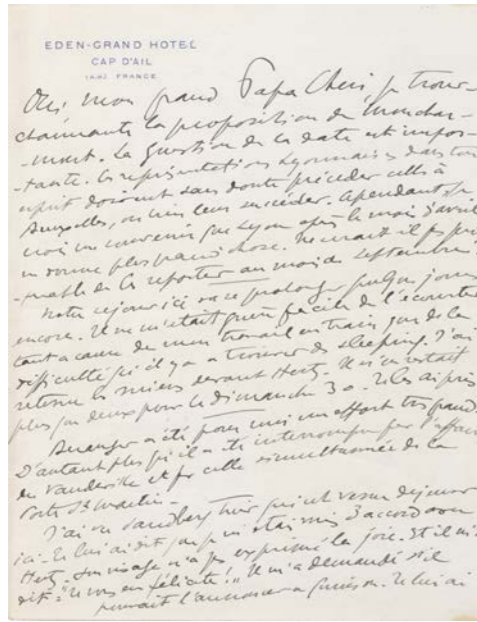 EDEN-GRAND HOTEL
CAP D'AIL
(A.M.) FRANCE
Oui, mon grand Papa Chéri, je trouve
charmante la proposition de Moncharmont.
La question de la date est impor-
-tante. Les représentations Lyonnaises dans ton
esprit doivent sans doute précéder celles à
Bruxelles, ou bien leur succéder. Cependant je
crois me souvenir que Lyon après le mois d'avril
ne donne plus grand chose. Ne serait il pas pré-
-férable de les reporter au mois de septembre
Notre séjour ici va se prolonger quelques jours
encore. Il ne m'était guère facile de l'écourter
tant à cause de mon travail en train que de la
difficulté qu'il y a à trouver des sleeping. J'ai
retenu les miens devant Hertz. Il n'en restait
plus que deux pour le dimanche 30. Je les ai pris
a été pour moi un effort très grand.
D'autant plus qu'il a été interrompu par l'affaire
du Vaudeville et par celle simultanée de la
Porte St Martin -
J'ai vu Sandberg hier qui est venu déjeuner
ici. Je lui ai dit que je m'étais mis d'accord avec
Hertz. Son visage n'a pas exprimé la joie. Et il m'a
dit: "Je vous en félicite!" Il m'a demandé s'il
pouvait l'annoncer à Je lui ai